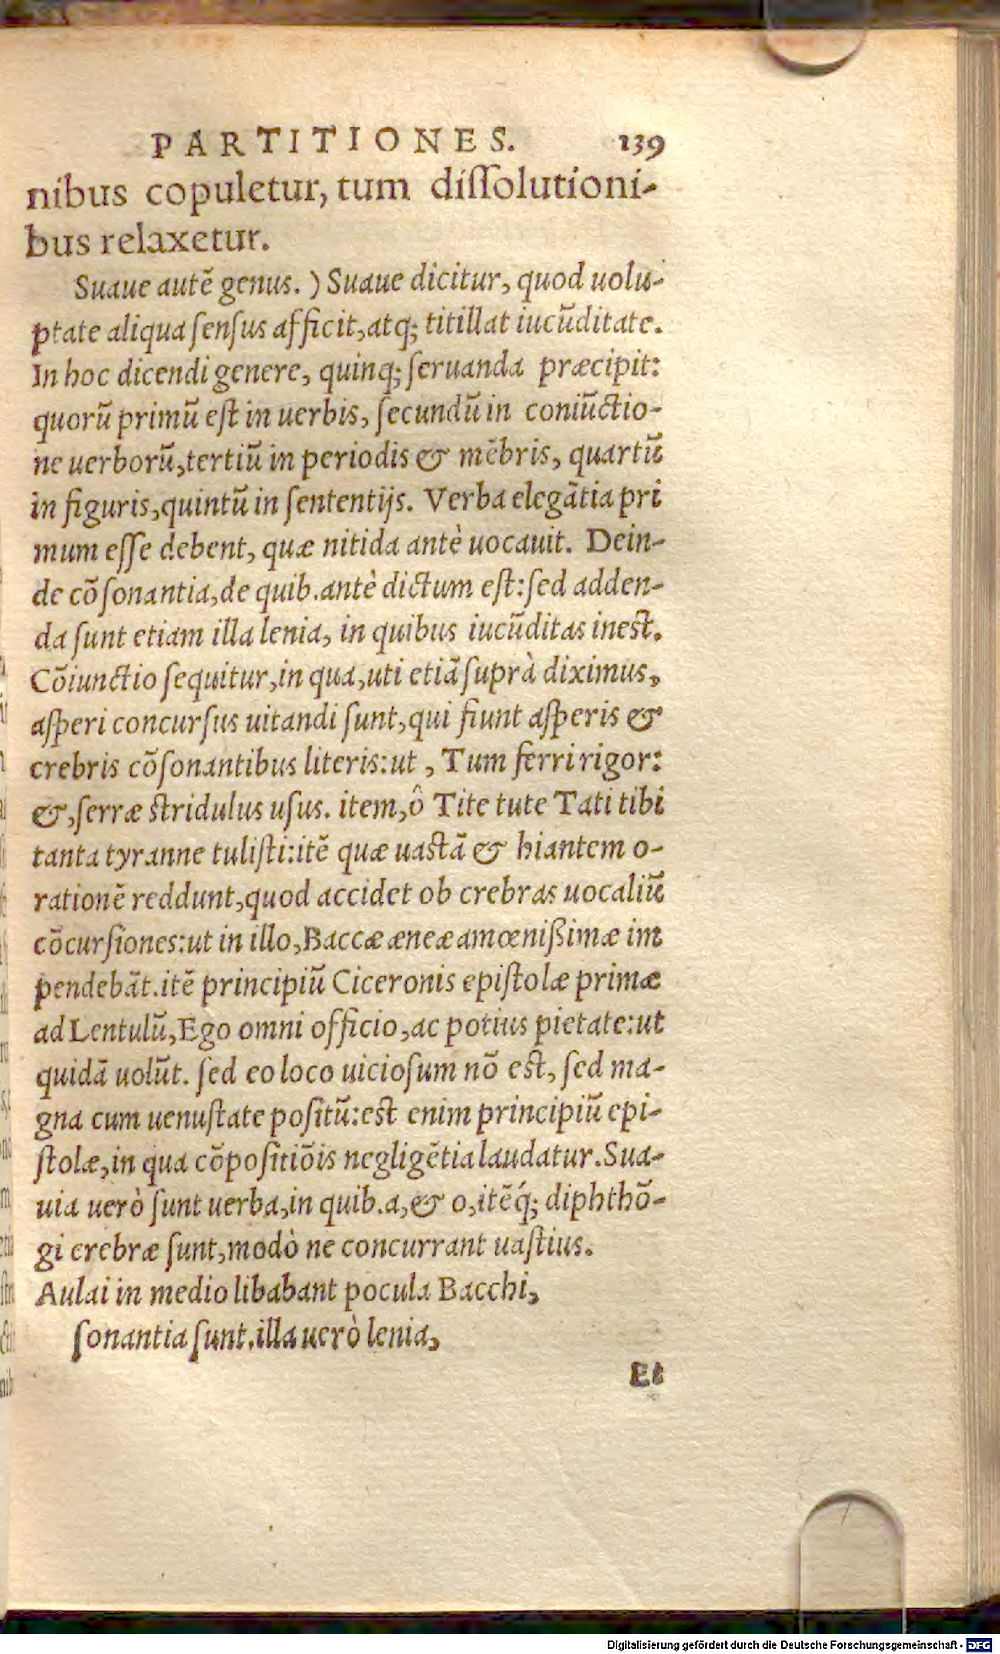 PARTITIONES. 139
nibus copuletur, tum dissolutioni-
bus relaxetur.
Suaue autē genus. ) Suaue dicitur, quod uolu-
ptate aliqua sensus afficit, atq; titillat iucūditate.
In hoc dicendi genere, quinq; seruanda præcipit:
quorū primū est in uerbis, secundū in coniūctio-
ne uerborū, tertiū in periodis & mēbris, quartū
in figuris, quintū in sententijs. Verba elegātia pri
mum esse debent, quæ nitida antè uocauit. Dein-
de cōsonantia, de quib. antè dictum est: sed adden-
da sunt etiam illa lenia, in quibus iucūditas inest.
Cōiunctio sequitur, in qua, uti etiā suprà diximus,
asperi concursus uitandi sunt, qui fiunt asperis &
crebris cōsonantibus literis: ut , Tum ferri rigor:
&, serræ stridulus usus. item, ô Tite tute Tati tibi
tanta tyranne tulisti: itē quæ uastā & hiantem o-
rationē reddunt, quod accidet ob crebras uocaliū
cōcursiones: ut in illo, Baccæ æneæ amœnißimæ im
pendebāt. itē principiū Ciceronis epistolæ primæ
ad Lentulū, Ego omni officio, ac potius pietate: ut
quidā uolūt. sed eo loco uiciosum nō est, sed ma-
gna cum uenustate positū: est enim principiū epi-
stolæ, in qua cōpositiōis negligētia laudatur. Sua-
uia uerò sunt uerba, in quib. a, & o, itēq́; diphthō-
gi crebræ sunt, modò ne concurrant uastius.
Aulai in medio libabant pocula Bacchi,
sonantia sunt. illa uerò lenia,
Et
Digitalisierung gefördert durch die Deutsche Forschungsgemeinschaft - DFG